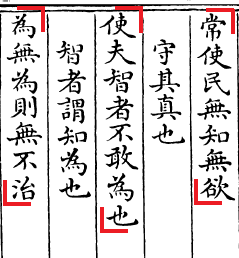 常使民無知無欲
守其真也
使夫智者不敢為也
智者謂知為也
為無為則無不治